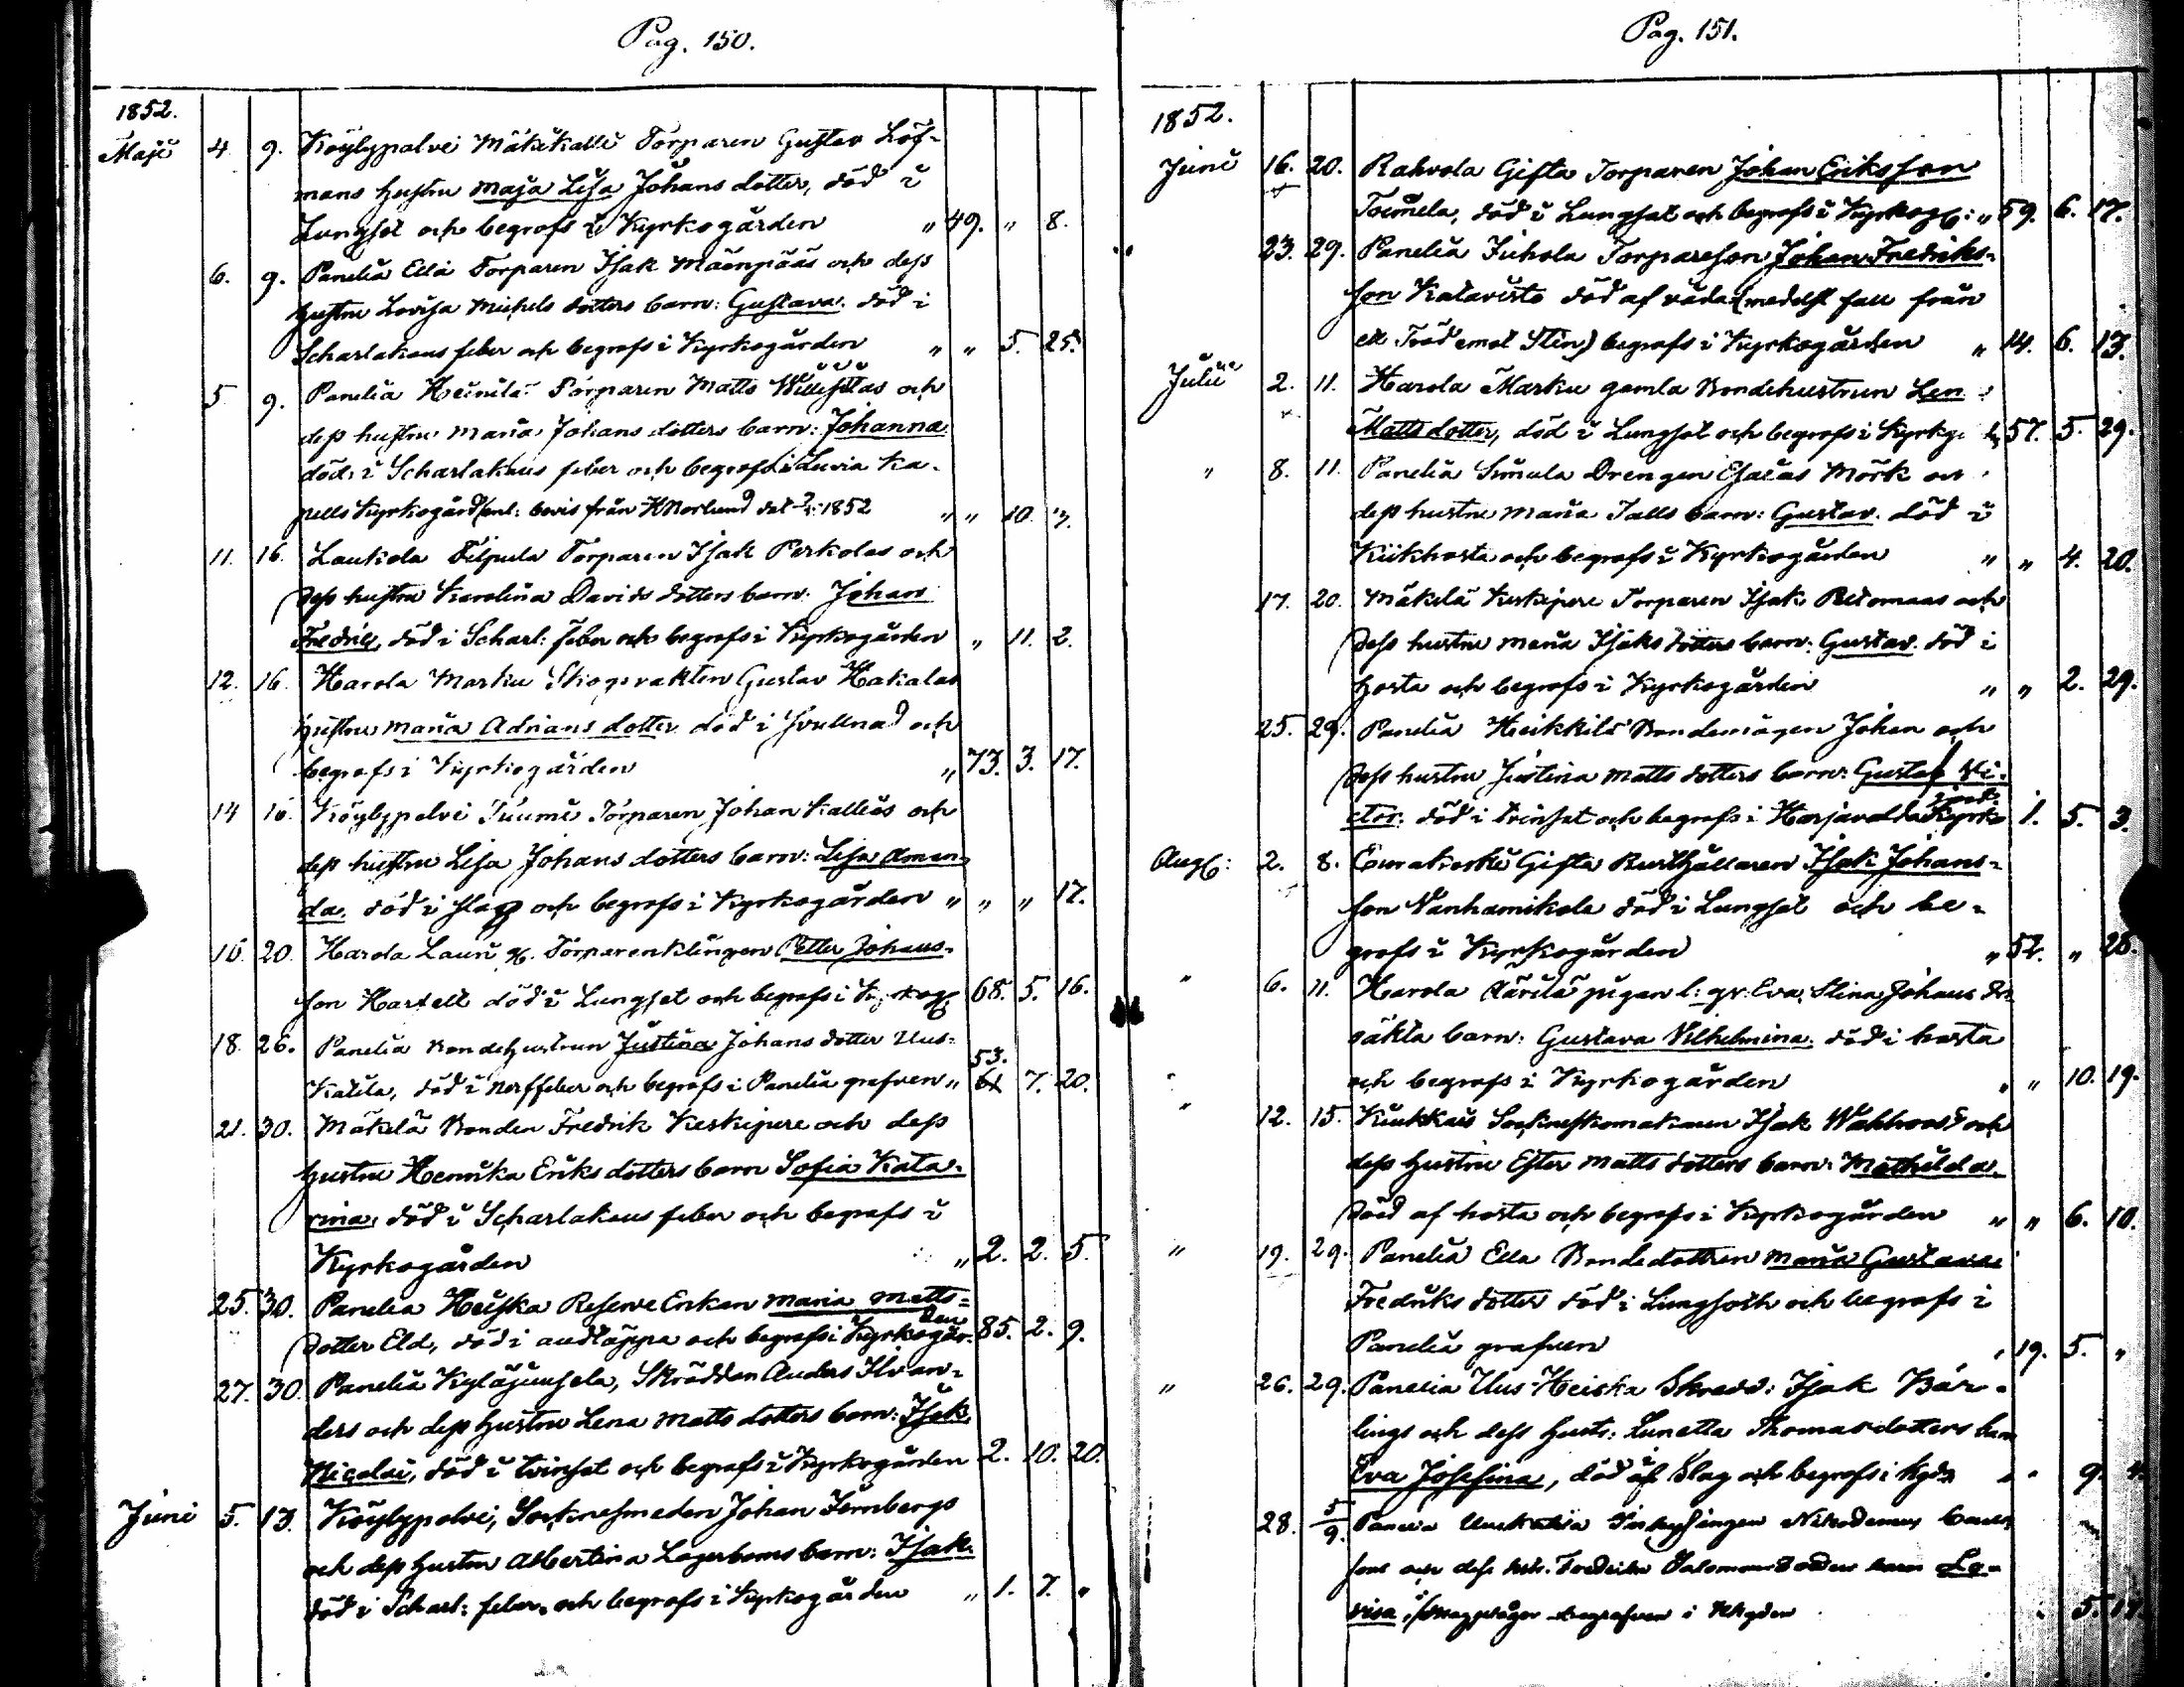 Pag. 150.
1852.
Maji 4. 9. Köylypolvi Mäkikalli Torparen Gustav Löf-
mans hustru Maja Lisa Johans dotter, död i
Lungsot och begrofs i Kyrkogården " 49. " 8.
6. 9. Panelia Eilä Torparen Isak Mäenpääs och dess
hustru Lovisa Michels dotters barn: Gustava. död i
Scharlakans feber och begrofs i Kyrkogården " " 5. 25.
5 9. Panelia Heinilä Torparen Matts och
dess hustru Maria Johans dotters barn: Johanna
död i Scharlakans feber och begrofs i Luvia Ka-
pells Kyrkogård enl: bevis från Norlund det 1852 " " 10. "
11. 16. Laukola Filpula Torparen Isak Perkolas och
dess hustru Karolina Davids dotters barn: Johan
Fredric, död i Scharl: feber och begrofs i Kyrkogården " 11. 2.
12. 16. Harola Marku Skogvakten Gustav Hakalas
hustru Maria Adrians dotter död i Svullnad och
begrofs i Kyrkogården " 73. 3. 17.
14 16. Köylypolvi Tuumi Torparen Johan Kalliäs och
dess hustru Lisa Johans dotters barn: Lisa Aman-
da. död i slag och begrofs i Kyrkogården " " " 17.
16. 20. Harola Lauri Torparenklingen Petter Johans-
son Hartell död i Lungsot och begrofs i Kyrkog 68. 5. 16.
18. 26. Panelia Bondehustrun Justina Johans dotter Uus-
53.
Katila, död i Nerffeber och begrofs i Panelia grafven " 7. 20.
21. 30. Mäkelä Bonden Fredrik Keskipere och dess
hustru Henrika Eriks dotters barn Sofia Kata-
rina, död i Scharlakans feber och begrofs i
Kyrkogården " 2. 2. 5.
25. 30. Panelia Heiska Reserve Enkan Maria Matts-
den
dotter Eld, död i andtäppa och begrofs i Kyrkogår- 85. 2. 9.
27. 30. Panelia Kyläjuusela, Skräddar Anders Ilvan-
ders och dess hustru Lena Matts dotters barn: Isak
Nicolai, död i tvinsot och begrofs i Kyrkogården 2. 10. 20.
Juni 5. 13. Köylypolvi, Socknesmeden Johan Jernbergs
och dess hustru Albertina Lagerboms barn: Isak
död i Scharl: feber. och begrofs i Kyrkogården " 1. 7. "
Pag. 151.
1852.
Juni 16. 20. Rahvola Gifta Torparen Johan Eriksson
Toimela, död i Lungsot och begrofs i Kyrkog: " 59. 6. 17.
23. 29. Panelia Juhola Torpareson Johan Fredriks-
son Katavisto död af våda (medelst fall från
ett Träd emot Sten) begrofs i Kyrkogården " 14. 6. 13.
Julii 2. 11. Harola Marku gamla Bondehustrun Len
Matts dotter, död i Lungsot och begrofs i Kyrkg 57. 5. 29.
" 8. 11. Panelia Simula Drengen Esaias Mörk och
dess hustru Maria Talls barn: Gustav. död i
Kikhosta och begrofs i Kyrkogården " " 4. 20.
17. 20. Mäkelä Keskipere Torparen Isak Reiomaas och
dess hustru Maria Isaks dotters barn: Gustav. död i
hosta och begrofs i Kyrkogården " " 2. 29.
25. 29. Panelia Heikkilä Bondemågen Johan och
dess hustru Justina Matts dotters barn: Gustaf Vi-
ctor. död i tvinsot och begrofs i Harjavalda Kyrko 1. 5. 3.
Aug: 2. 8. Eurakoski Gifta Rusthållaren Isak Johans-
son Vanhamikola död i Lungsot och be-
grofs i Kyrkogården " 52. " 28.
" 6. 11. Harola pigan l: gr: Eva Stina Johans
oäkta barn: Gustava Vilhelmina. död i hosta
och begrofs i Kyrkogården " " 10. 19.
" 12. 15. Kiukkais Sockneskomakaren Isak Wahlroos och
dess hustru Ester Matts dotters barn: Mathilda.
död af hosta och begrofs i Kyrkogården " " 6. 10.
" 19. 29. Panelia Eilä Bondedottren Maria Gustava
Fredriks dotter död i Lungsoth och begrofs i
Panelia grafven " 19. 5. "
" 26. 29. Panelia Uus-Heiska Skredd: Isak Bär-
lings och dess hust: Lunetta Thomasdotters barn
Eva Josefina, död af Slag och begrofs i kgdn " " 9. 4.
28. 5/9. Panelia Uuskatila Nikodemus
sons och dess hust. Fredrika Salomonsdotters barn Lo-
visa, begrafven i kkgden 5. 17.